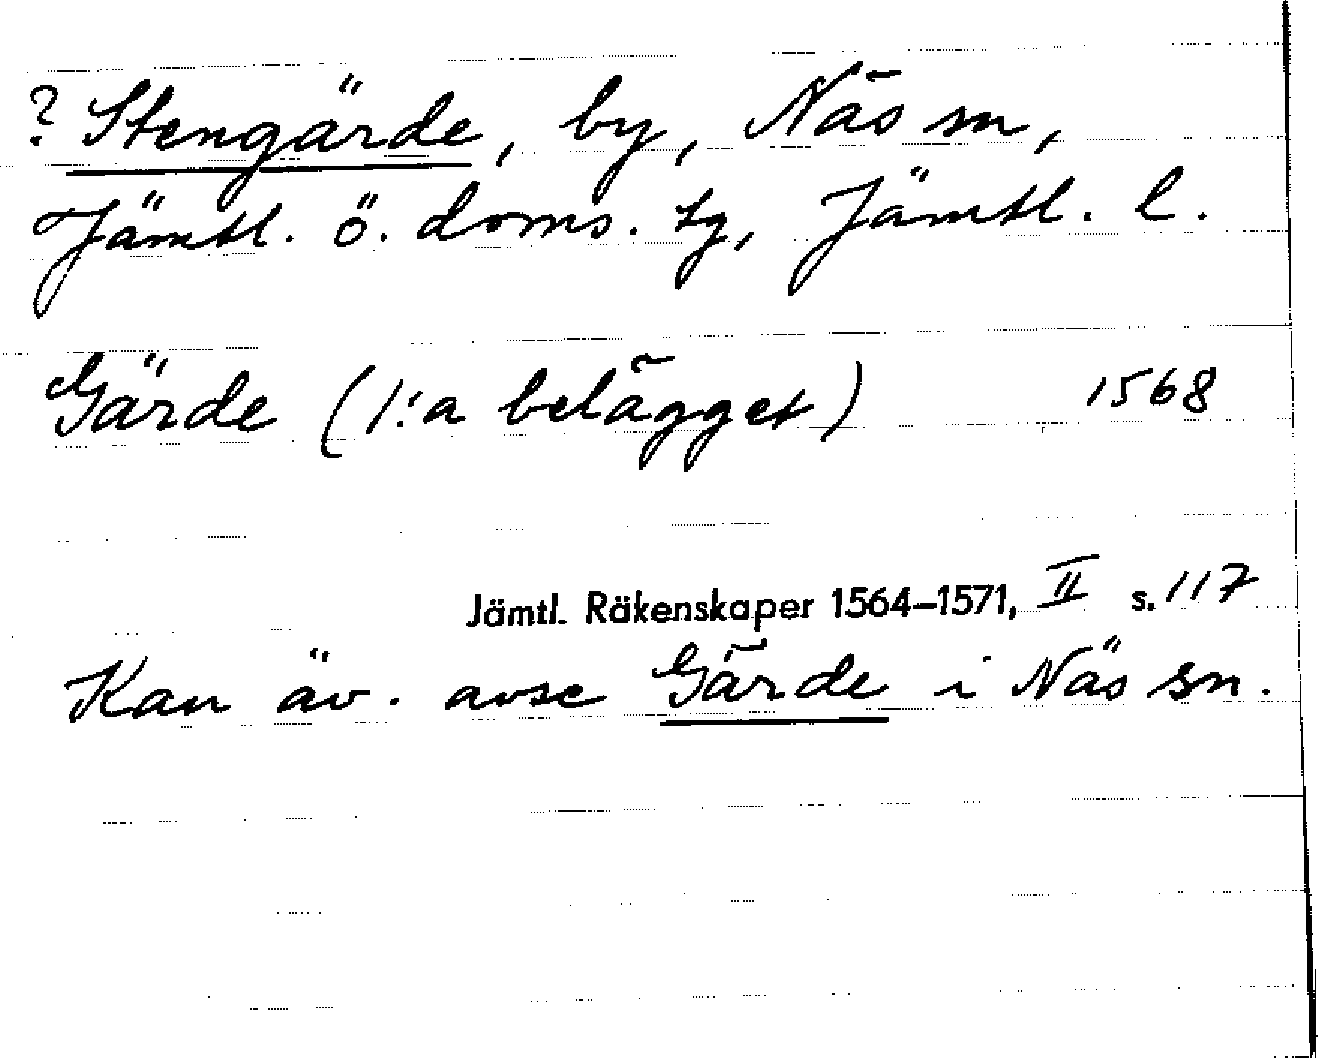 ? Stengärde, by, Näs sn,
Jämtl. ö. doms. tg, Jämtl. l.
Gärde (1:a belägget) 1568
Jämtl. Räkenskaper 1564–1571, II s. 117
Kan äv. avse Gärde i Näs sn.